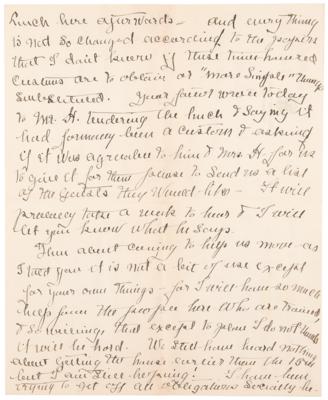 Lunch here afterwards - and every thing
is not so changed according to the papers
that I don't know if these time-honored
customs are to obtain or "more simple" things
substituted. Your father wrote today
to Mr. H. tendering the lunch & saying it
had formerly been a custom & asking
if it was agreeable to him & Mrs H. for us
to give it for them please to send us a list
of the guests they would like - It will
probably take a week to hear & I will
let you know what he says.
Then about coming to help us move - as
I told you it is not a bit of use except
for your own things - for I will have so much
help from the people here who are trained
& so willing that except to plan I do not think
it will be hard. We still have heard nothing
about getting the house earlier than the 15th
but I am still hoping! I have been
trying to get off all obligations socially